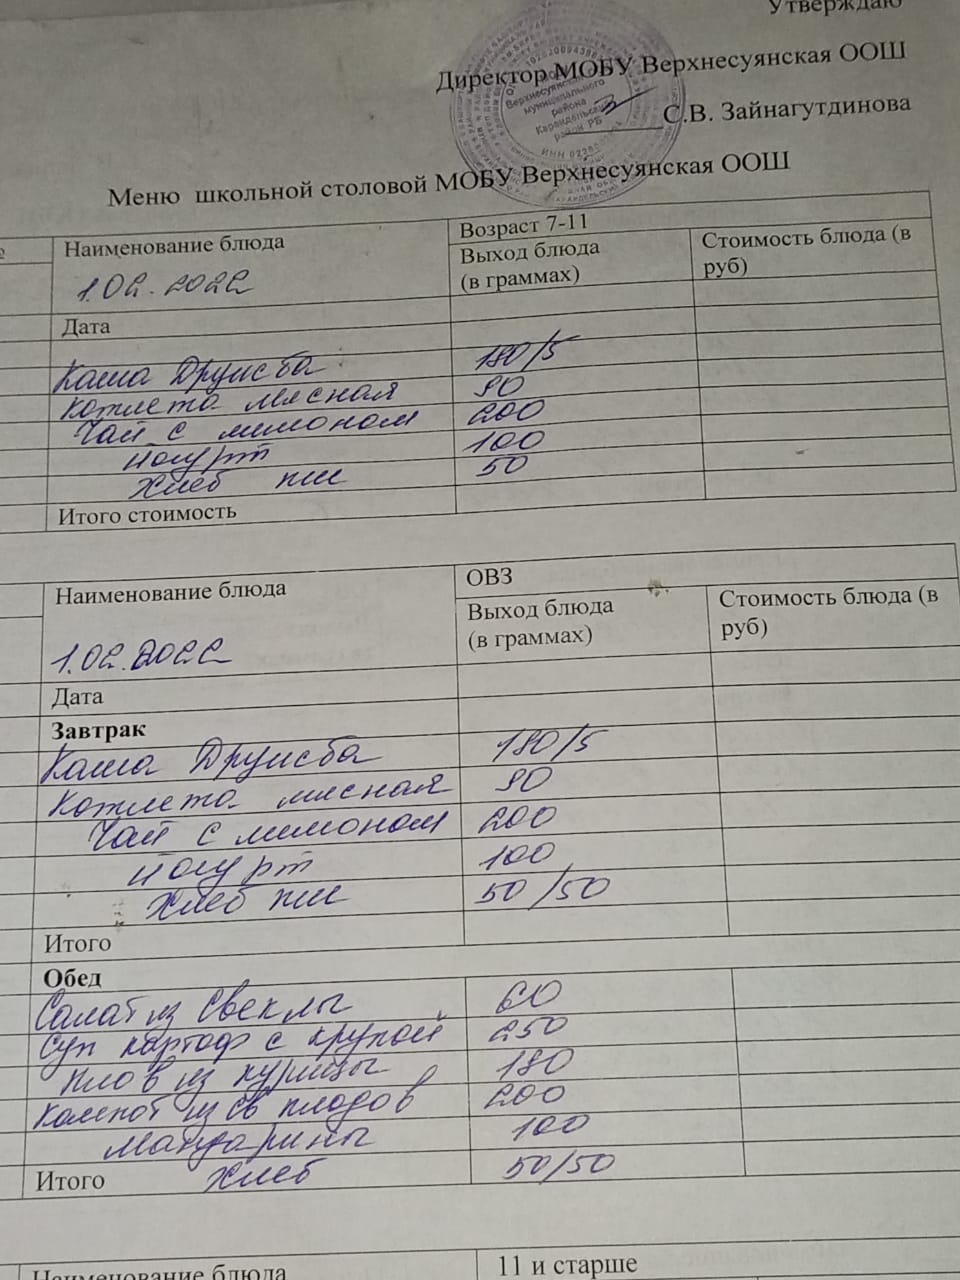 Утверждаю
Директор МОБУ Верхнесуянская ООШ
С.В. Зайнагутдинова
Верхнесуянская
муниципального
района
Караидельский
район РБ
Меню школьной столовой МОБУ Верхнесуянская ООШ
№ Наименование блюда Возраст 7-11
Выход блюда (в граммах) Стоимость блюда (в руб)
1.02.2022
Дата
Каша Дружба 180/5
Котлета мясная 90
Чай с лимоном 200
йогурт 100
Хлеб пш 50
Итого стоимость
Наименование блюда ОВЗ
Выход блюда (в граммах) Стоимость блюда (в руб)
1.02.2022
Дата
Завтрак
Каша Дружба 180/5
Котлета мясная 90
Чай с лимоном 200
йогурт 100
Хлеб пш 50/50
Итого
Обед
Салат из Свеклы 60
Суп картоф с крупой 250
плов из курицы 180
Компот из св плодов 200
Мандарины 100
Итого Хлеб 50/50
Наименование блюда 11 и старше